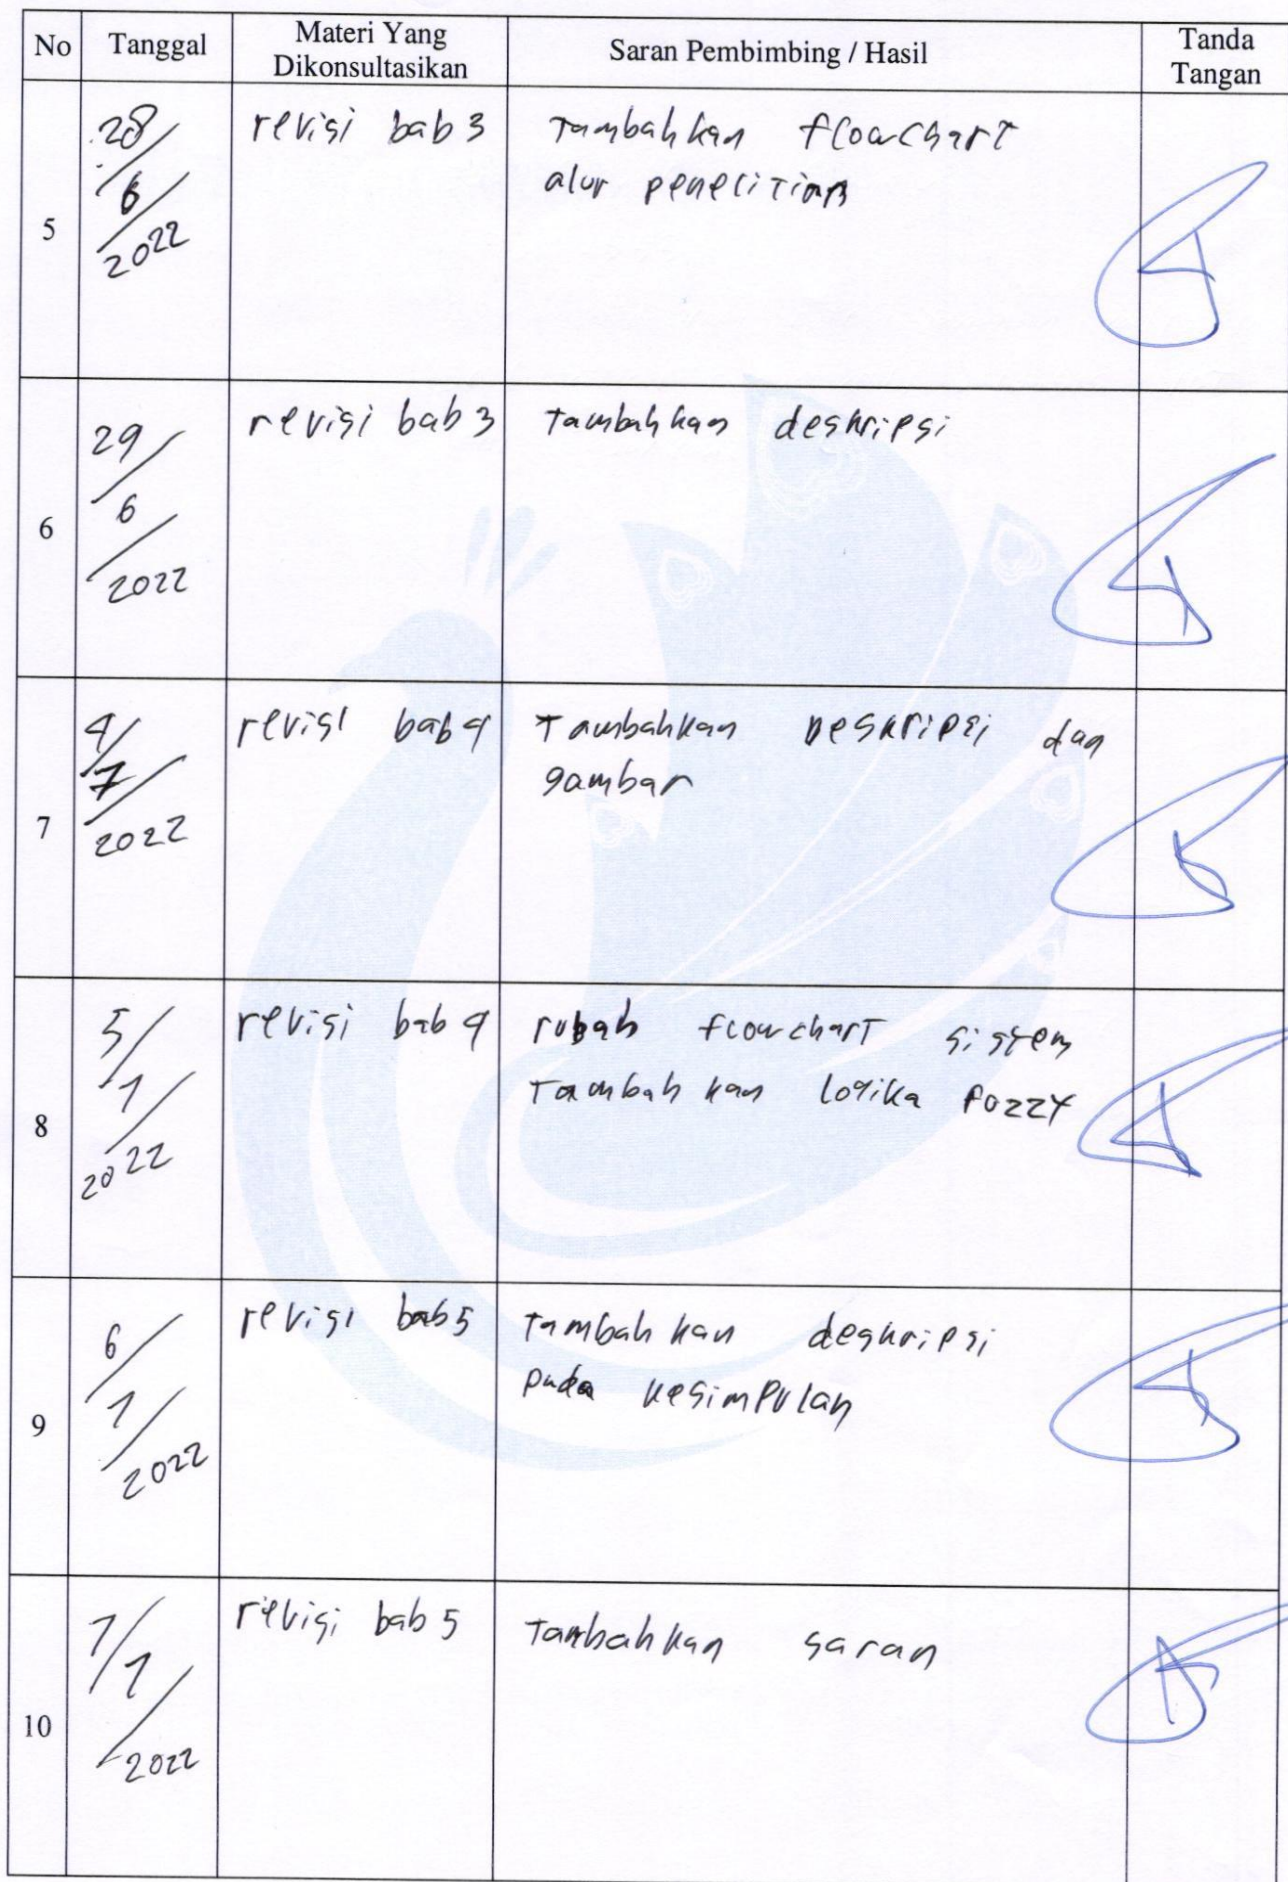 No Tanggal Materi Yang Dikonsultasikan Saran Pembimbing / Hasil Tanda Tangan
5 28/6/2022 revisi bab 3 Tambahkan flowchart
alur penelitian
6 29/6/2022 revisi bab 3 Tambahkan deskripsi
7 4/7/2022 revisi bab 4 Tambahkan Deskripsi dan
gambar
8 5/7/2022 revisi bab 4 rubah flowchart sistem
Tambahkan logika fuzzy
9 6/7/2022 revisi bab 5 Tambahkan deskripsi
pada kesimpulan
10 7/7/2022 revisi bab 5 Tambahkan saran